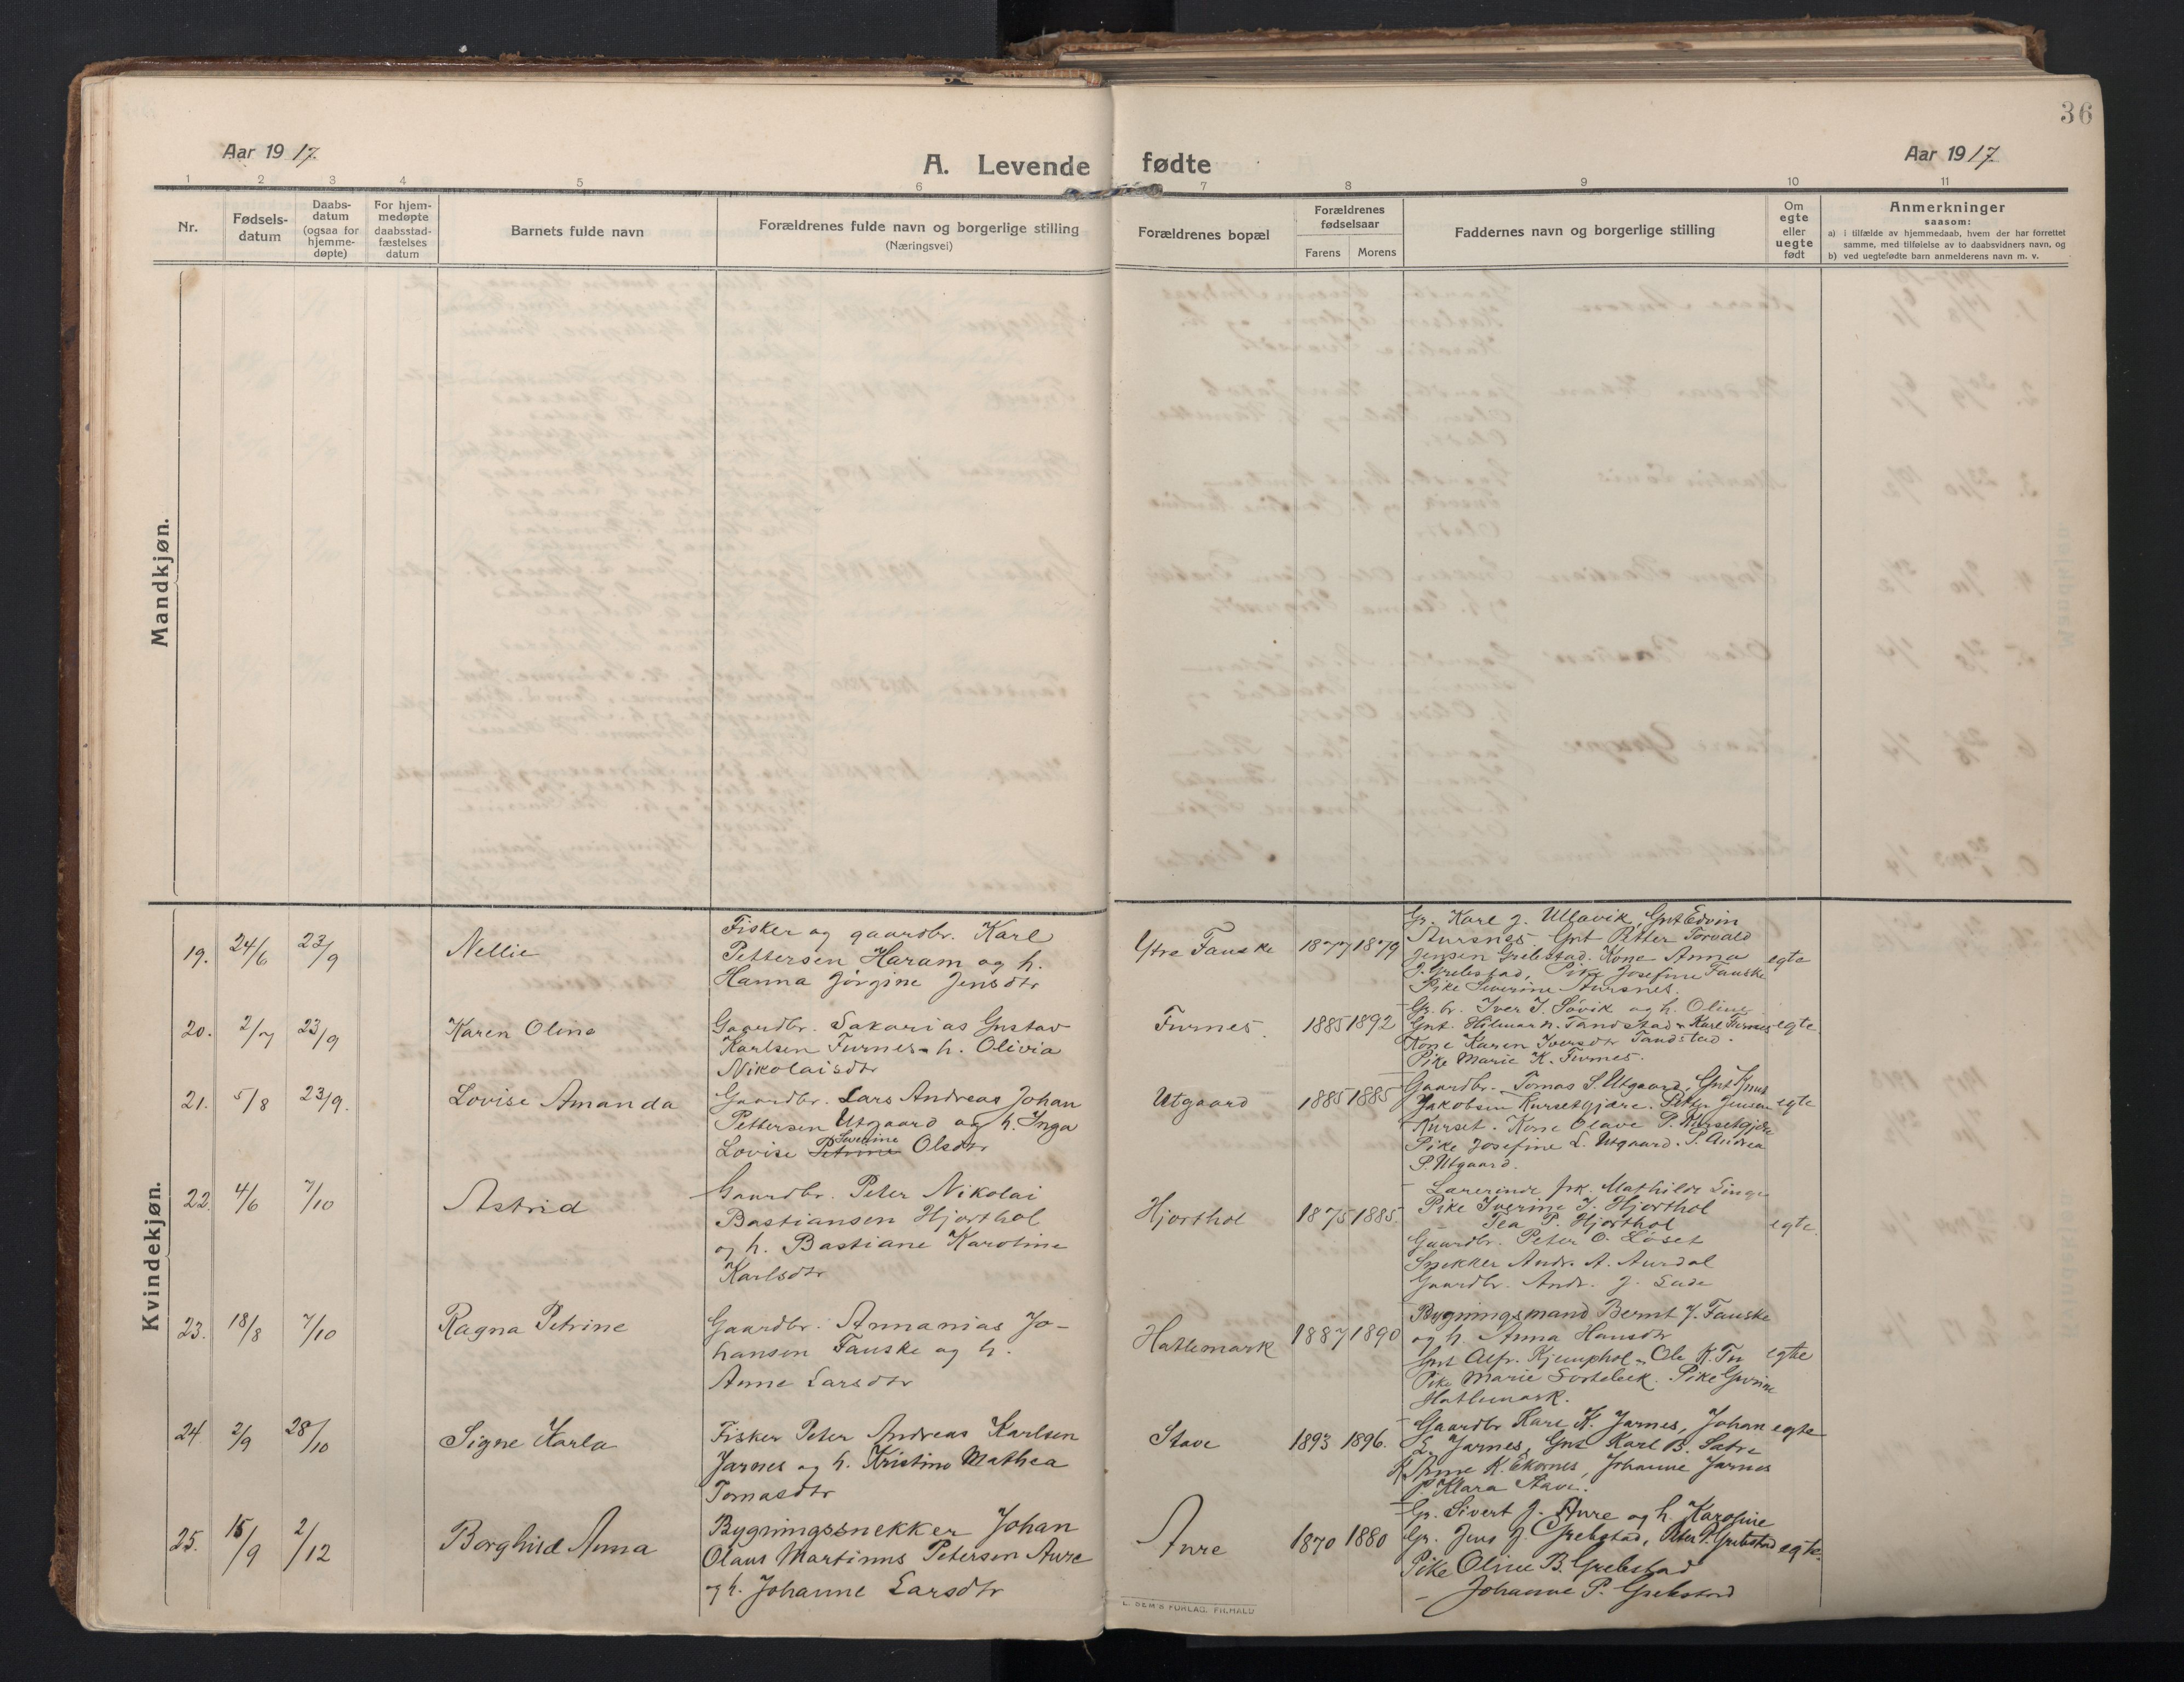 36
Aar 1917.
A. Levende fødte
Aar 1917.
1 2 3 4 5 6 7 8 9 10 11
Nr.
Fødsels-
datum
Daabs-
datum
(ogsaa for
hjemme-
døpte)
For hjem-
medøpte
daabsstad-
fæstelses
datum
Barnets fulde navn
Forældrenes fulde navn og borgerlige stilling
(Næringsvei)
Forældrenes bopæl
Forældrenes
fødselsaar
Farens Morens
Faddernes navn og borgerlige stilling
Om
egte
eller
uegte
født
Anmerkninger
saasom:
a) i tilfælde av hjemmedaab, hvem der har forrettet
samme, med tilføielse av to daabsvidners navn, og
b) ved uegtefødte barn anmelderens navn m. v.
Mandkjøn.
Kvindekjøn.
19. 24/6 23/9 Nellie
Fisker og gaardbr. Karl
Pettersen Haram og h.
Hanna Jørgine Jensdtr
Ytre Fauske 1877 1879
Gr. Karl J. Ullavik, Gnt Edvin
Aursnes. Gnt Petter Torvald
Jensen Grebestad. Kone Anna
J. Grebestad, Pike Josefine Fauske
Pike Severine Aursnes.
egte
20. 2/7 23/9 Karen Oline
Gaardbr. Sakarias Gustav
Karlsen Furnes - h. Olivia
Nikolaisdtr
Furnes. 1885 1892
Gr. br. Iver I. Søvik og h. Oline
Gnt. Hilmar N. Tandstad - Karl Furnes
Kone Karen Iversdtr Tandstad.
Pike Marie K. Furnes.
egte
21. 5/8 23/9. Lovise Amanda
Gaardbr. Lars Andreas Johan
Pettersen Utgaard og h. Inga
Lovise Petrine Severine Olsdtr
Utgaard 1885 1885
Gaardbr. Tomas S. Utgaard, Gnt Knut
Jakobsen Kursetgjære. Jensen
Kurset. Kone Olave P. Kursetgjære
Pike Josefine L. Utgaard. P. Andrea
P. Utgaard.
egte
22. 4/6 7/10 Astrid
Gaardbr. Peter Nikolai
Bastiansen Hjorthol
og h. Bastiane Karoline
Karlsdtr
Hjorthol 1875 1885
Lærerinde frk. Mathilde
Pike Iverine I. Hjorthol
Tea P. Hjorthol
Gaardbr. Peter O. Løset
Snekker Andr. A. Aurdal
Gaardbr. Andr. J. Lade
egte.
23. 18/8 7/10 Ragna Petrine
Gaardbr. Annanias Jo-
hansen Fauske og h.
Anne Larsdtr
Hatlemark 1887 1890
Bygningsmand Bernt J. Fauske
og h. Anna Hansdtr
Gnt Alfr. Kjemphol - Ole K. Tu
Pike Marie Svortebek. Pike
Hatlemark.
egte
24. 2/9 28/10 Signe Karla
Fisker Peter Andreas Karlsen
Jarnes og h. Kristine Mathea
Tomasdtr
Stave 1893 1896.
Gaardbr Karl K. Jarnes, Johan
L. Jarnes, Gnt Karl B. Satre
K. Anne K. Ekornes, Johanne Jarnes
P. Klara Stave.
egte
25. 15/9 2/12 Borghild Anna
Bygningssnekker Johan
Olaus Martinus Petersen Aure
og h. Johanne Larsdtr
Aure 1870 1880
Gr. Sivert J. Aure og h. Karoline
Gr. Jens J. Grebstad, Peter P. Grebstad
Pike Oline B. Grebstad
- Johanne P. Grebstad
egte.